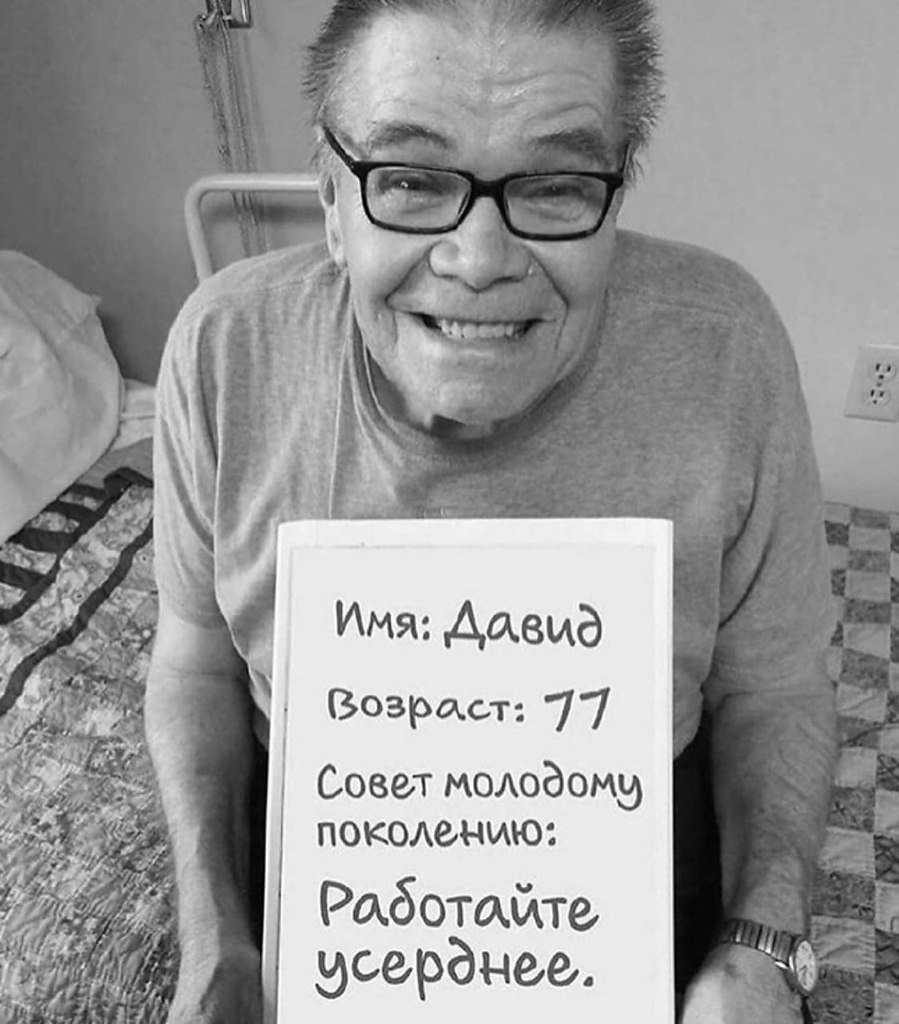 Имя: Давид
Возраст: 77
Совет молодому
поколению:
Работайте
усерднее.